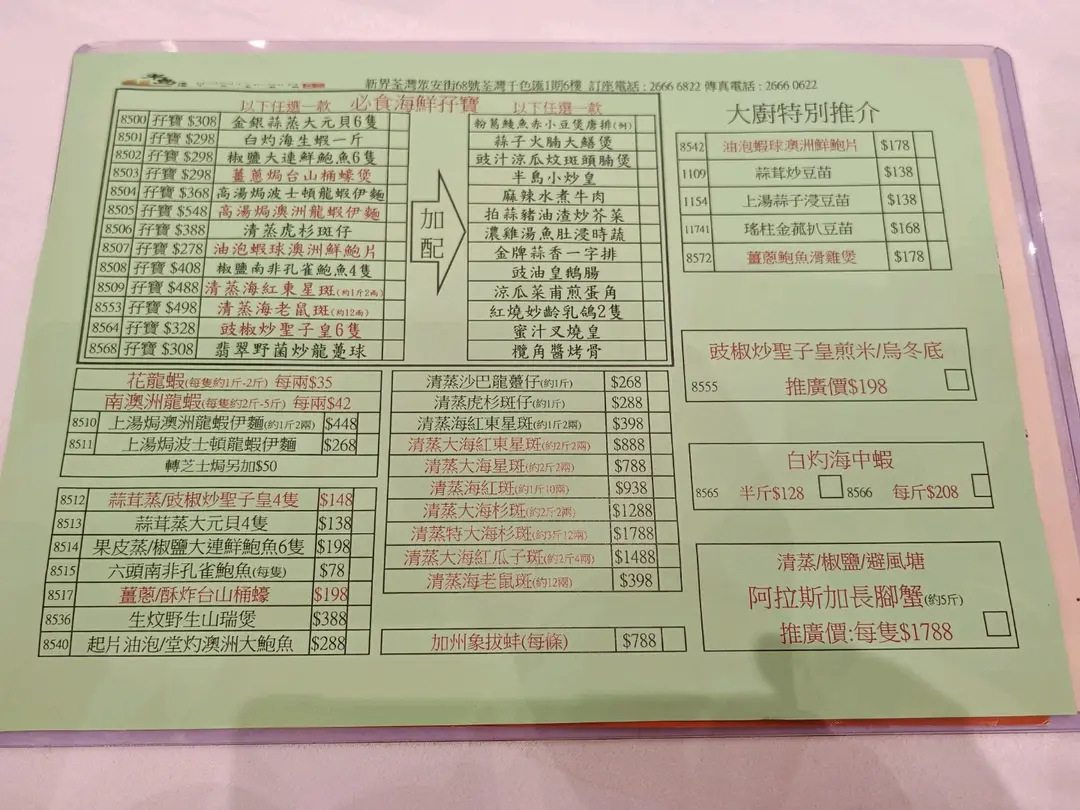 新界荃灣眾安街68號荃灣千色匯1期6樓 訂座電話 : 2666 6822 傳真電話 : 2666 0622
以下任選一款 必食海鮮孖寶 以下任選一款
8500 孖寶 $308 金銀蒜蒸大元貝6隻
8501 孖寶 $298 白灼海生蝦一斤
8502 孖寶 $298 椒鹽大連鮮鮑魚6隻
8503 孖寶 $298 薑蔥焗台山桶蠔煲
8504 孖寶 $368 高湯焗波士頓龍蝦伊麵
8505 孖寶 $548 高湯焗澳洲龍蝦伊麵
8506 孖寶 $388 清蒸虎杉斑仔
8507 孖寶 $278 油泡蝦球澳洲鮮鮑片
8508 孖寶 $408 椒鹽南非孔雀鮑魚4隻
8509 孖寶 $488 清蒸海紅東星斑(約1斤2兩)
8553 孖寶 $498 清蒸海老鼠斑(約12兩)
8564 孖寶 $328 豉椒炒聖子皇6隻
8568 孖寶 $308 翡翠野菌炒龍躉球
加配
粉葛鯪魚赤小豆煲唐排(例)
蒜子火腩大鱔煲
豉汁涼瓜炆斑頭腩煲
半島小炒皇
麻辣水煮牛肉
拍蒜豬油渣炒芥菜
濃雞湯魚肚浸時蔬
金牌蒜香一字排
豉油皇鵝腸
涼瓜菜甫煎蛋角
紅燒妙齡乳鴿2隻
蜜汁叉燒皇
欖角醬烤骨
大廚特別推介
8542 油泡蝦球澳洲鮮鮑片 $178
1109 蒜茸炒豆苗 $138
1154 上湯蒜子浸豆苗 $138
11741 瑤柱金菰扒豆苗 $168
8572 薑蔥鮑魚滑雞煲 $178
豉椒炒聖子皇煎米/烏冬底
8555 推廣價$198
白灼海中蝦
8565 半斤$128 8566 每斤$208
清蒸/椒鹽/避風塘
阿拉斯加長腳蟹(約5斤)
推廣價:每隻$1788
花龍蝦(每隻約1斤-2斤) 每兩$35
南澳洲龍蝦(每隻約2斤-5斤) 每兩$42
8510 上湯焗澳洲龍蝦伊麵(約1斤2兩) $448
8511 上湯焗波士頓龍蝦伊麵 $268
轉芝士焗另加$50
8512 蒜茸蒸/豉椒炒聖子皇4隻 $148
8513 蒜茸蒸大元貝4隻 $138
8514 果皮蒸/椒鹽大連鮮鮑魚6隻 $198
8515 六頭南非孔雀鮑魚(每隻) $78
8517 薑蔥/酥炸台山桶蠔 $198
8536 生炆野生山瑞煲 $388
8540 起片油泡/堂灼澳洲大鮑魚 $288
清蒸沙巴龍躉仔(約1斤) $268
清蒸虎杉斑仔(約1斤) $288
清蒸海紅東星斑(約1斤2兩) $398
清蒸大海紅東星斑(約2斤2兩) $888
清蒸大海星斑(約2斤2兩) $788
清蒸海紅斑(約1斤10兩) $938
清蒸大海杉斑(約2斤2兩) $1288
清蒸特大海杉斑(約3斤12兩) $1788
清蒸大海紅瓜子斑(約2斤4兩) $1488
清蒸海老鼠斑(約12兩) $398
加州象拔蚌(每條) $788